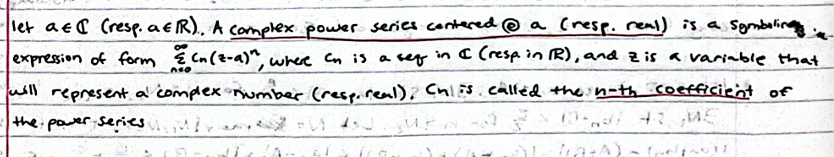 let a ∈ ℂ (resp. a ∈ ℝ). A complex power series centered @ a (resp. real) is a symbolic
expression of form ∞ Σ n=0 Cn(z-a)ⁿ, where Cn is a seq in ℂ (resp in ℝ), and z is a variable that
will represent a complex number (resp. real). Cn is called the n-th coefficient of
the power series